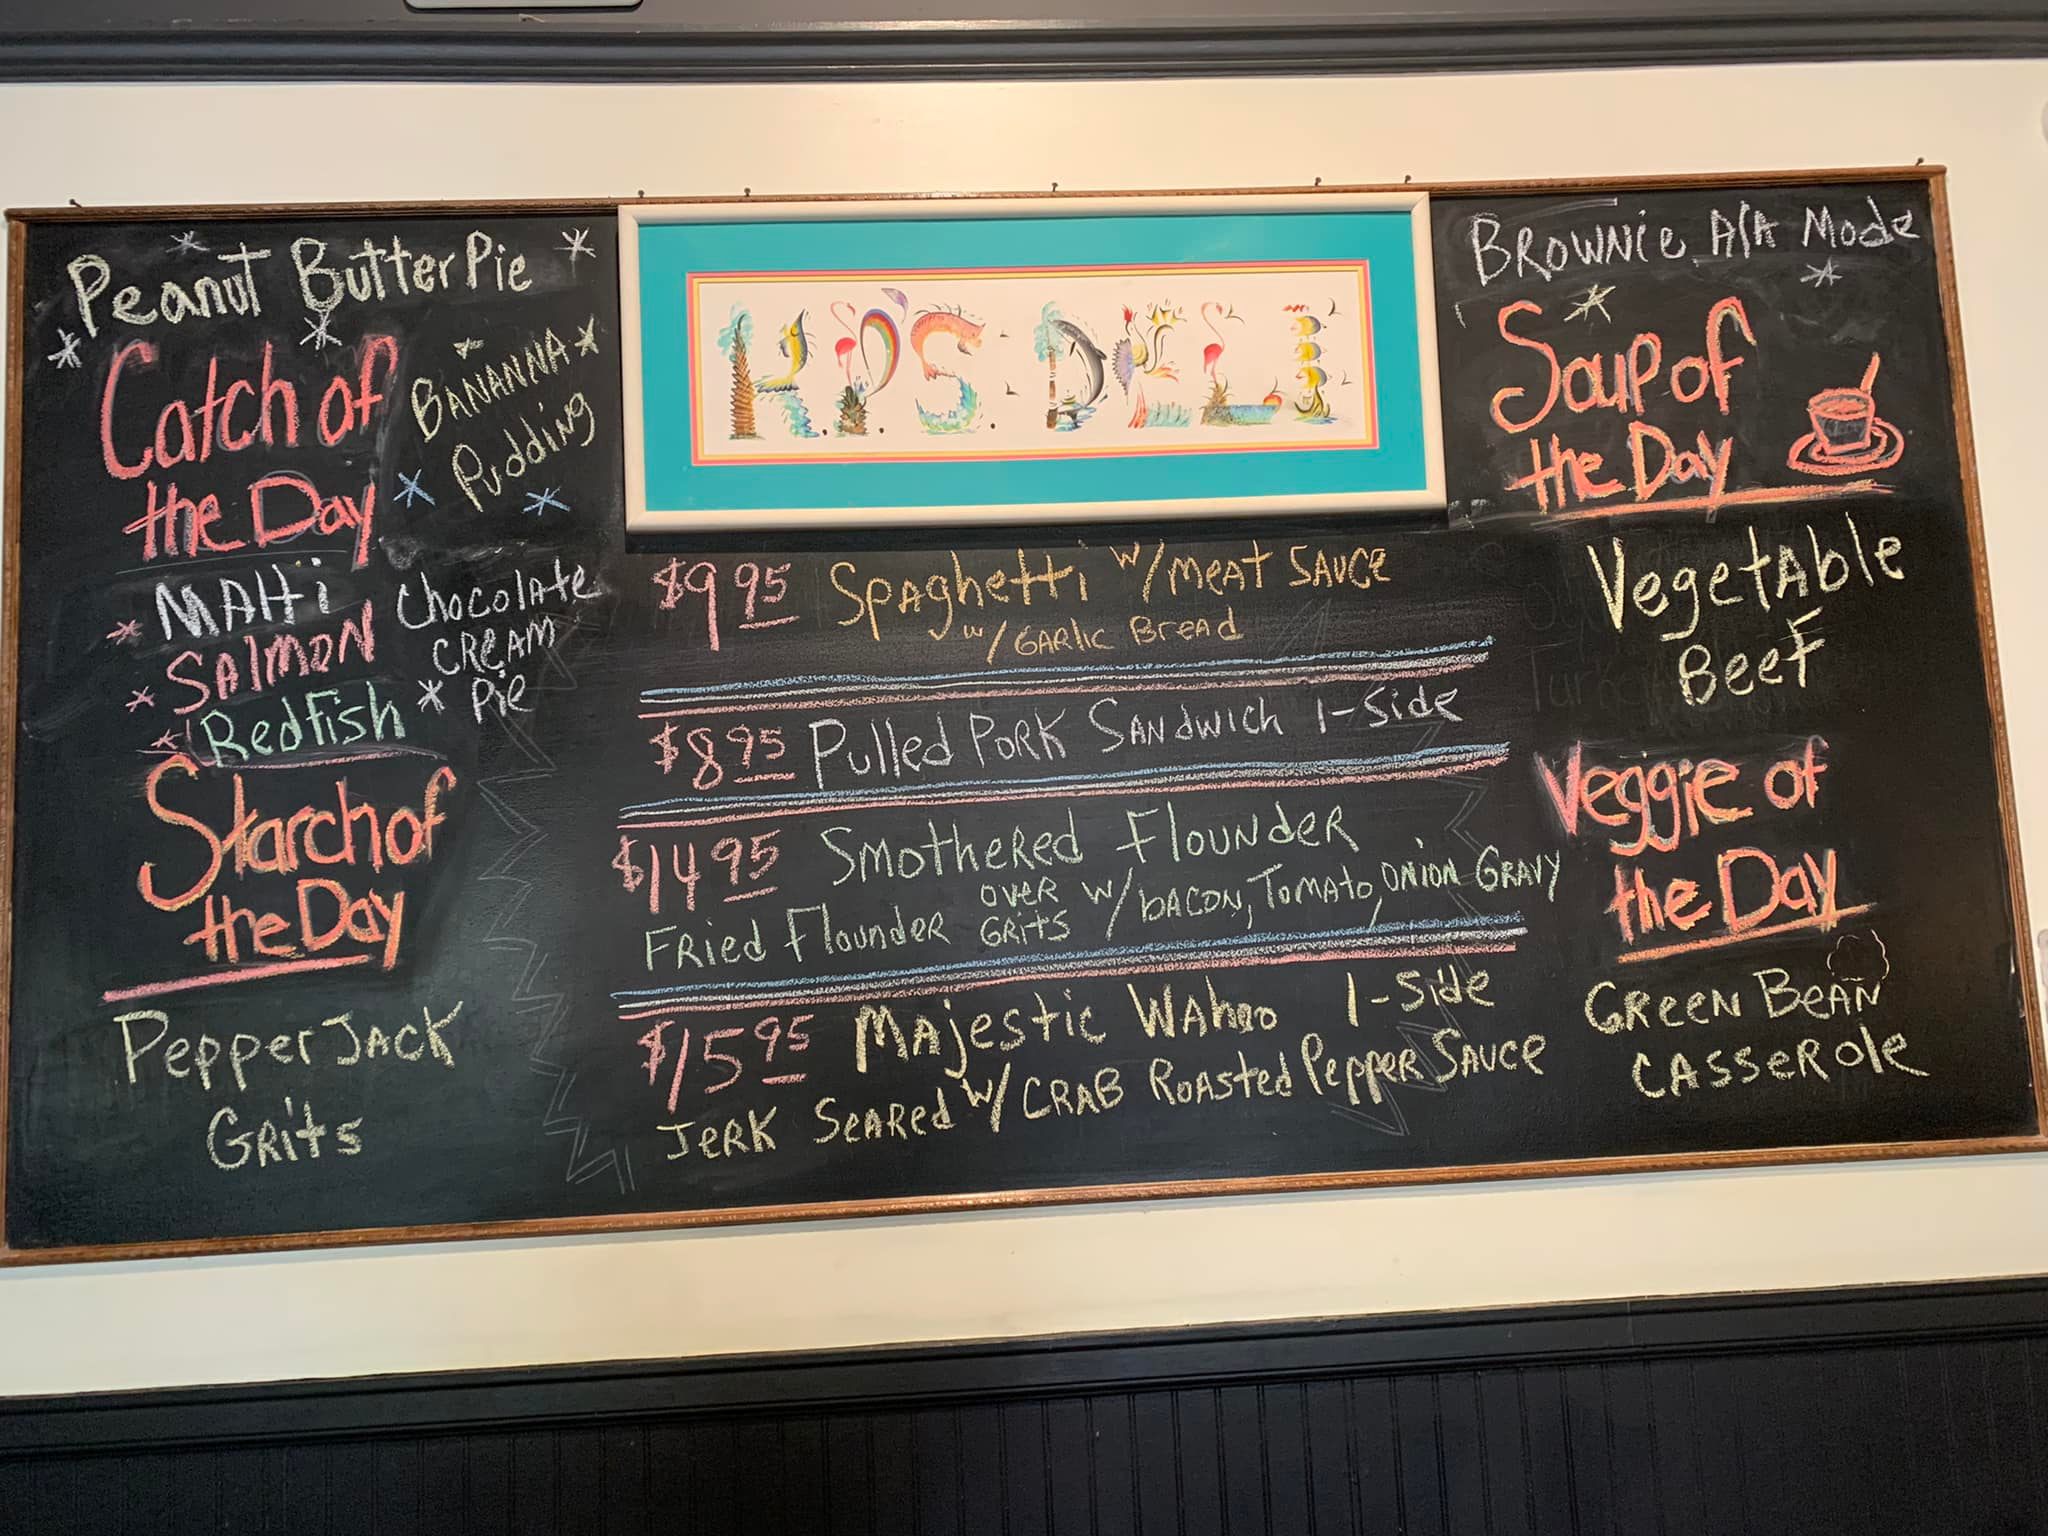 Peanut Butter Pie
Catch of
the Day
BANANNA
Pudding
MAHi
SAlMON
Redfish
Chocolate
CREAM
Pie
Starch of
the Day
Pepper JACK
GRits
H.P.'S. DELI
$9 95 SpAghetti w/ MEAT SAUCE
w/ GARlic BREAd
$8 95 Pulled PORK SANdwich 1-Side
$14 95 SMotheRed FlouNdeR
FRied Flounder OVER GRits w/ bACON, TOMATO, ONiON GRAVY
$15 95 MAjestic WAhoo 1-Side
JERK SEARed w/ CRAB ROASted Pepper SAUCE
BROWNie AlA Mode
Soup of
the Day
VegetAble
BeeF
Veggie of
the Day
GReeN BeAN
CASSeROle